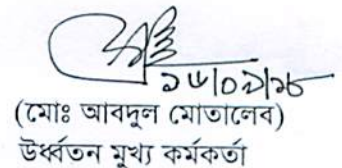 ১৬/০৯/১৮
(মোঃ আবদুল মোতালেব)
উর্ধ্বতন মুখ্য কর্মকর্তা